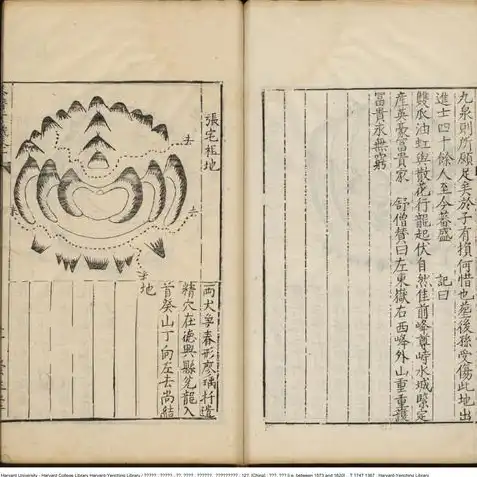 九泉則所願足矣於子有損何惜也塟後孫受傷此地出
進士四十餘人至今蕃盛 記曰
雙水油虹與散花行龍起伏自然佳前峰尊峙水城緊定
產英豪富貴家 舒僧贊曰左東嶽右西峰外山重重護
冨貴永無窮
張宅祖地
去
去
去
地
兩犬爭春形廖瑀扦遺
精穴在德興縣兊龍入
首癸山丁向左去尚結
Harvard University - Harvard College Library Harvard-Yenching Library
between 1573 and 1620
T 1747 1367 Harvard-Yenching Library